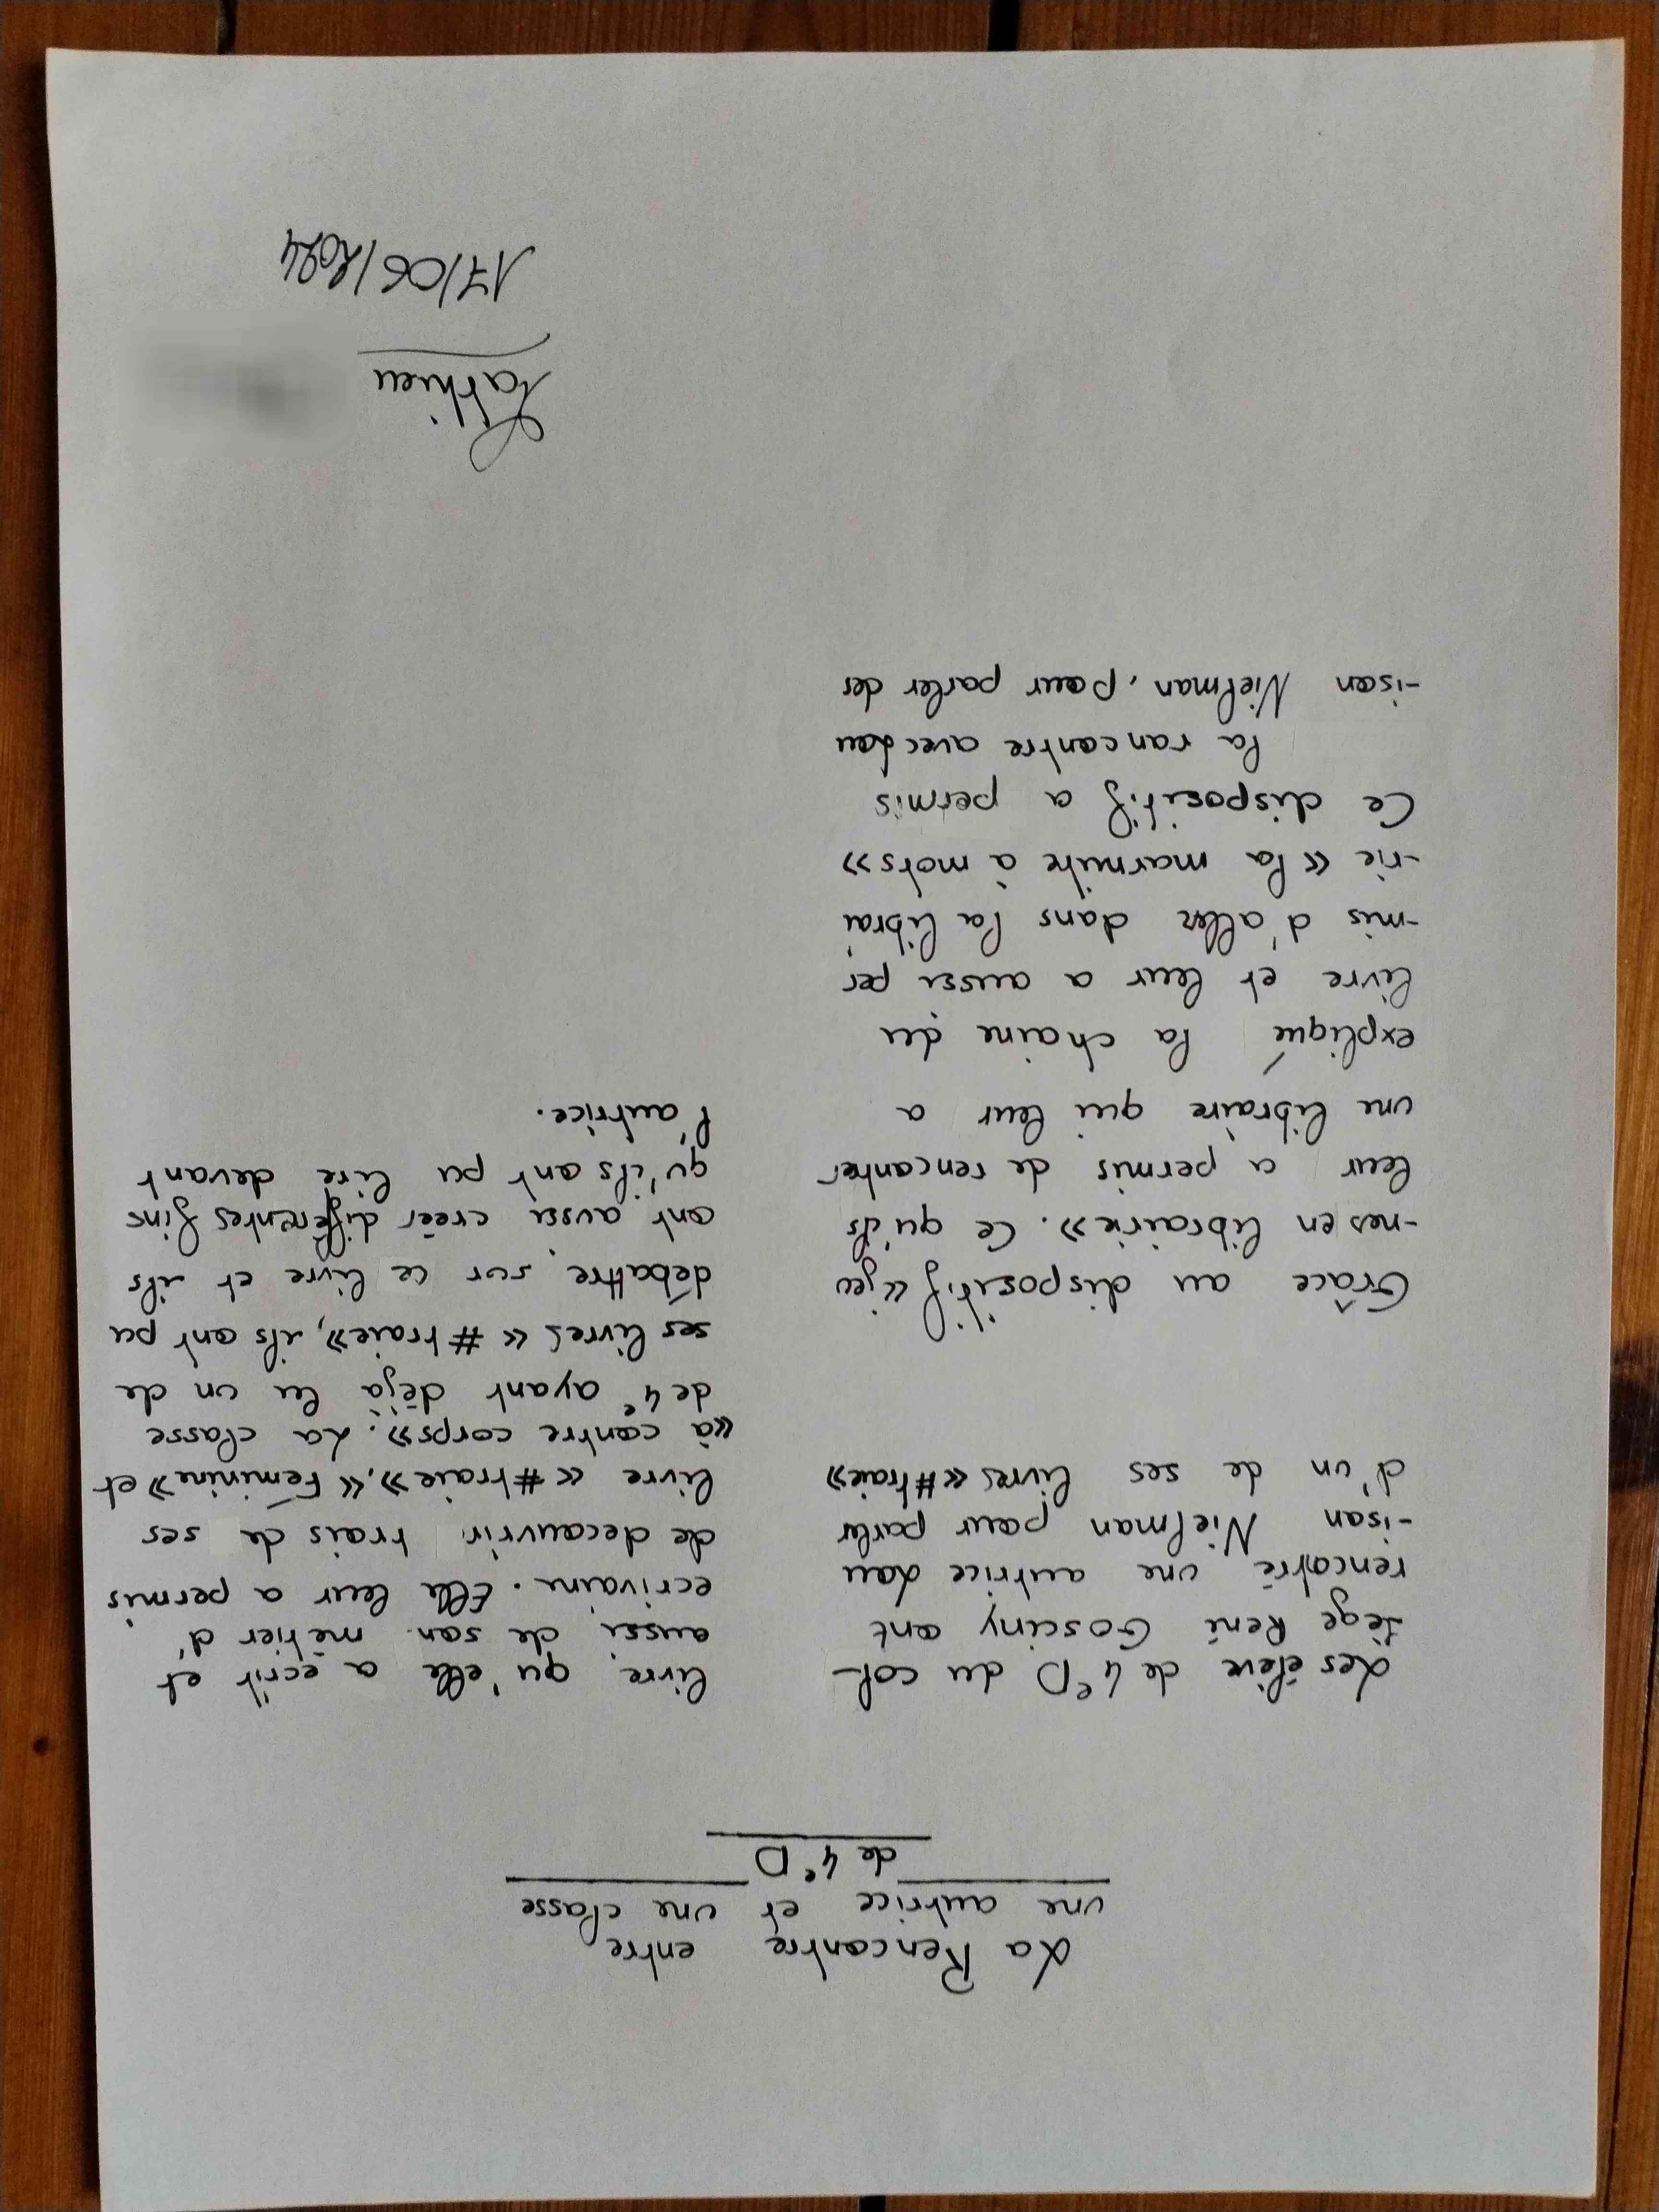 La Rencontre entre
une autrice et une classe
de 4°D
Les élève de 4eD du col-
lège René Gosciny ont
rencotré une autrice Lou
-ison Nielman pour parler
d'un de ses livres «#traie»
Grâce au dispositif «jeu
-nes en librairie». Ce qu'ils
leur a permis de rencontrer
une libraire qui leur a
expliqué la chaine du
livre et leur a aussi per
-mis d'aller dans la librai
-rie «la marmite à mots»
Ce dispositif a permis
la rancontre avec Lou
-ison Nielman, pour parler des
livre qu'elle a écrit et
aussi de son métier d'
ecrivain. Elle leur a permis
de decouvrir trois de ses
livre «#traie», «Feminine» et
«à contre corps». La classe
de 4e ayant déjà lu un de
ses livres «#traie», ils ont pu
débattre sur ce livre et ils
ont aussi créer différentes fins
qu'ils ont pu lire devant
l'autrice.
17/06/2024